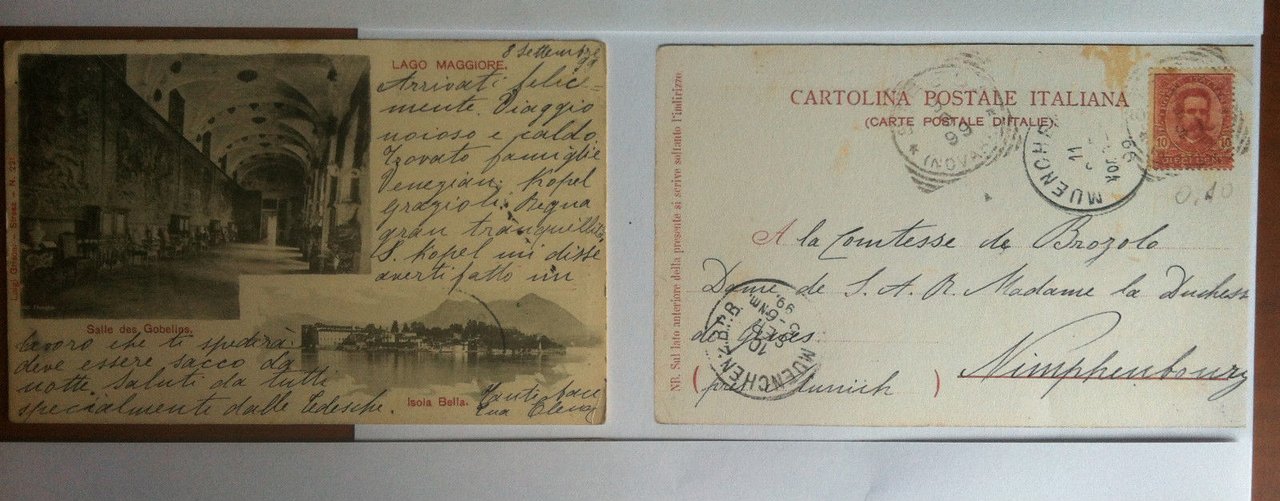 8 Settembre
99
LAGO MAGGIORE.
Arrivati felic=
mente. Viaggio
noioso e caldo.
Trovato famiglie
Venegian. Kopel
Grazioli. Regna
gran tranquillità
S. Kopel mi disse
averti fatto un
Salle des Gobelins.
lavoro che ti spedirà
deve essere sacco da
notte. Saluti da tutti
specialmente dalle Tedesche.
Isola Bella.
Tua Elena
Stresa N. 221
CARTOLINA POSTALE ITALIANA
(CARTE POSTALE D'ITALIE)
NB. Sul lato anteriore della presente si scrive soltanto l'indirizzo
99
(NOVARA)
MUENCHEN
11
99
10
DIECI CENT
0,10
A la Comtesse de Brozolo
Dame de S. A. R. Madame la Duchesse
de Gênes
(près Munich)
Nimphenbourg
MUENCHEN 2.B.P.B.
10 SEP.
99.